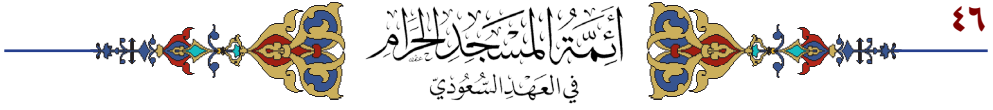 ٤٦
أَئِمَّةُ المَسْجِدِ الحَرَامِ
فِي العَهْدِ السُّعُودِيّ